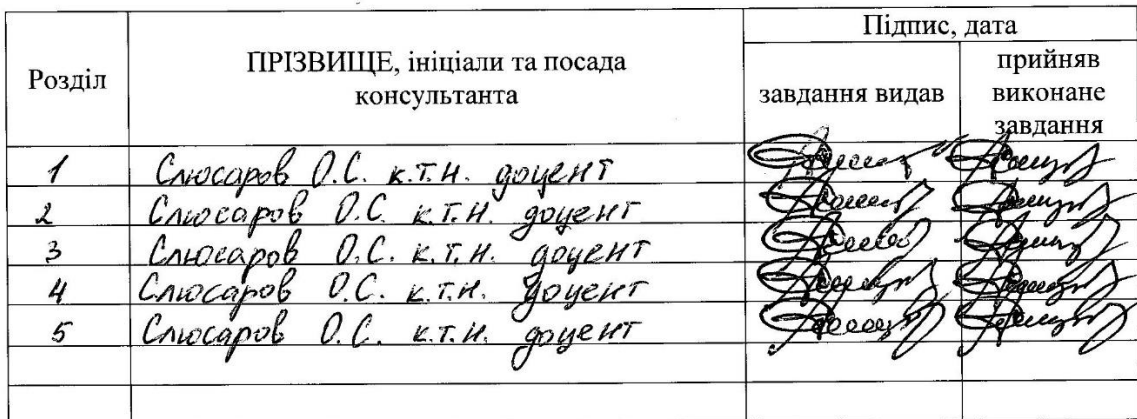 Підпис, дата
Розділ ПРІЗВИЩЕ, ініціали та посада
консультанта
завдання видав прийняв
виконане
завдання
1 Слюсаров О.С. к.т.н. доцент
2 Слюсаров О.С. к.т.н. доцент
3 Слюсаров О.С. к.т.н. доцент
4 Слюсаров О.С. к.т.н. доцент
5 Слюсаров О.С. к.т.н. доцент